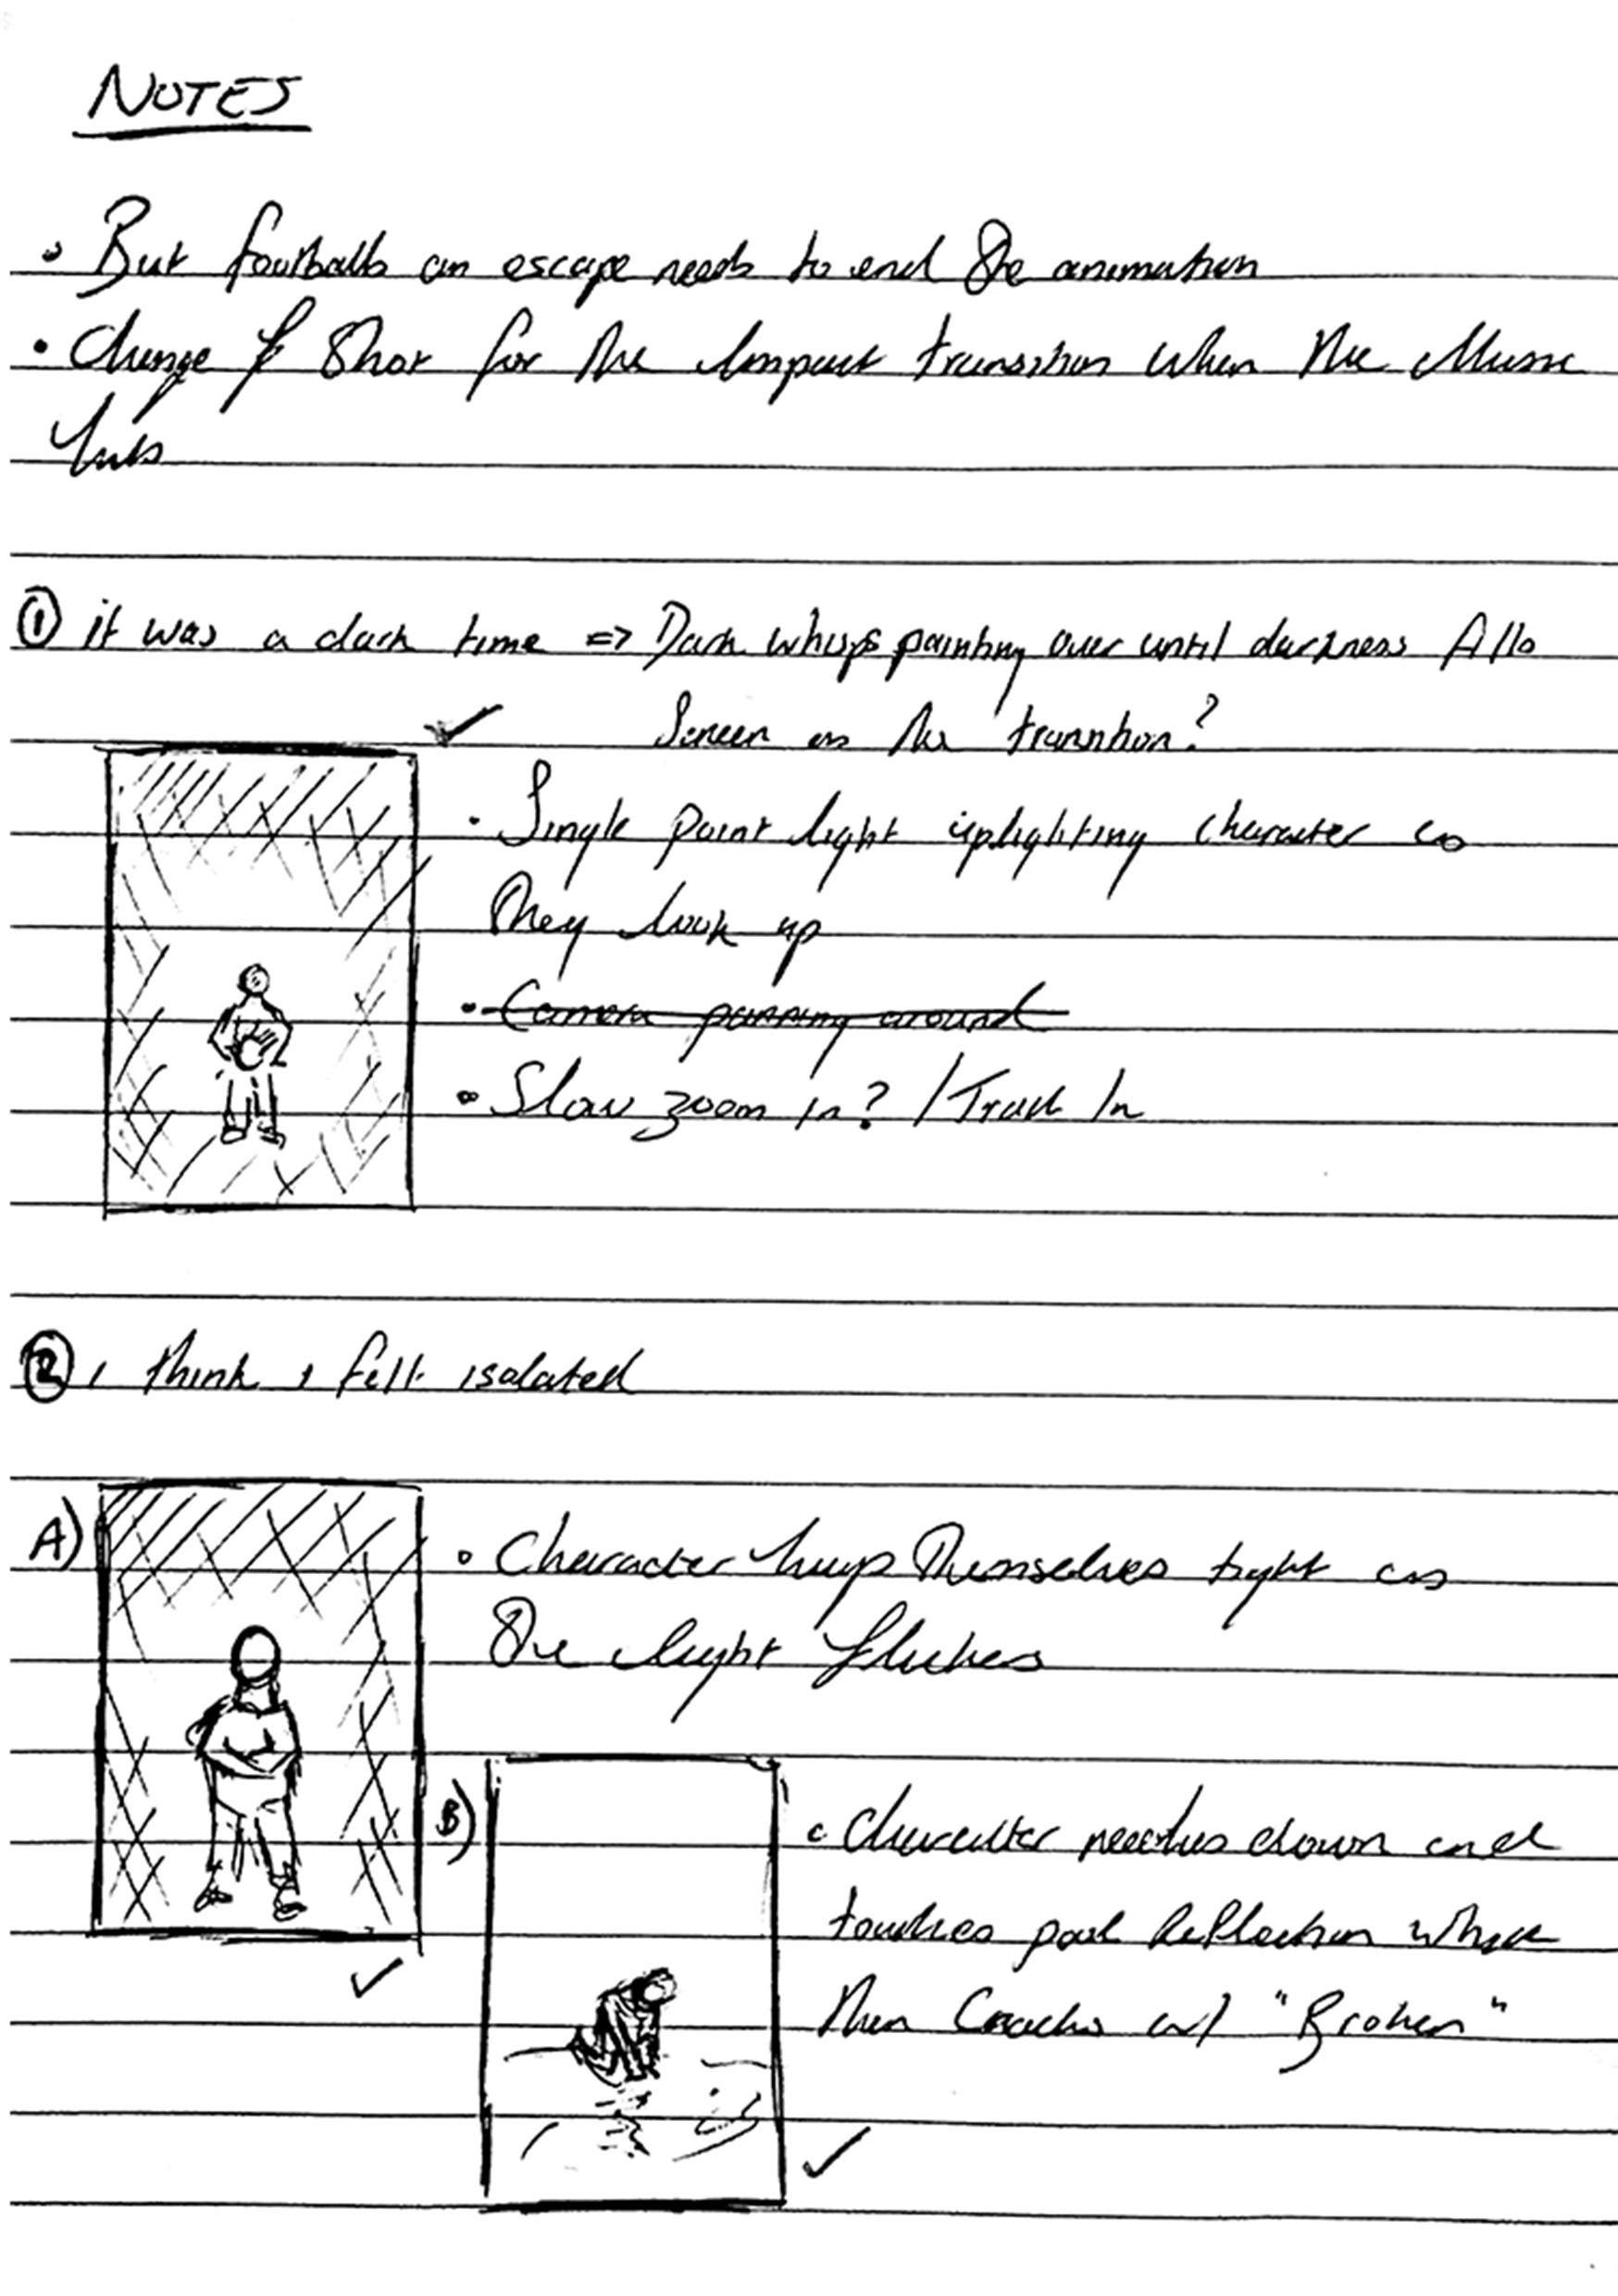 NOTES
• But footballs an escape needs to end the animation
• Change of Shot for the Impact transition when the Music
hits
① it was a dark time => Dark whisps painting over until darkness fills
Screen as the transition?
• Single point light uplighting character as
They look up
• Camera panning around
• Slow zoom in? / Track In
② I think I felt isolated
A)
• Character hugs Themselves tight as
The light flickers
B)
• Character kneels down and
touches pool Reflection which
then Cracks w/ "Broken"